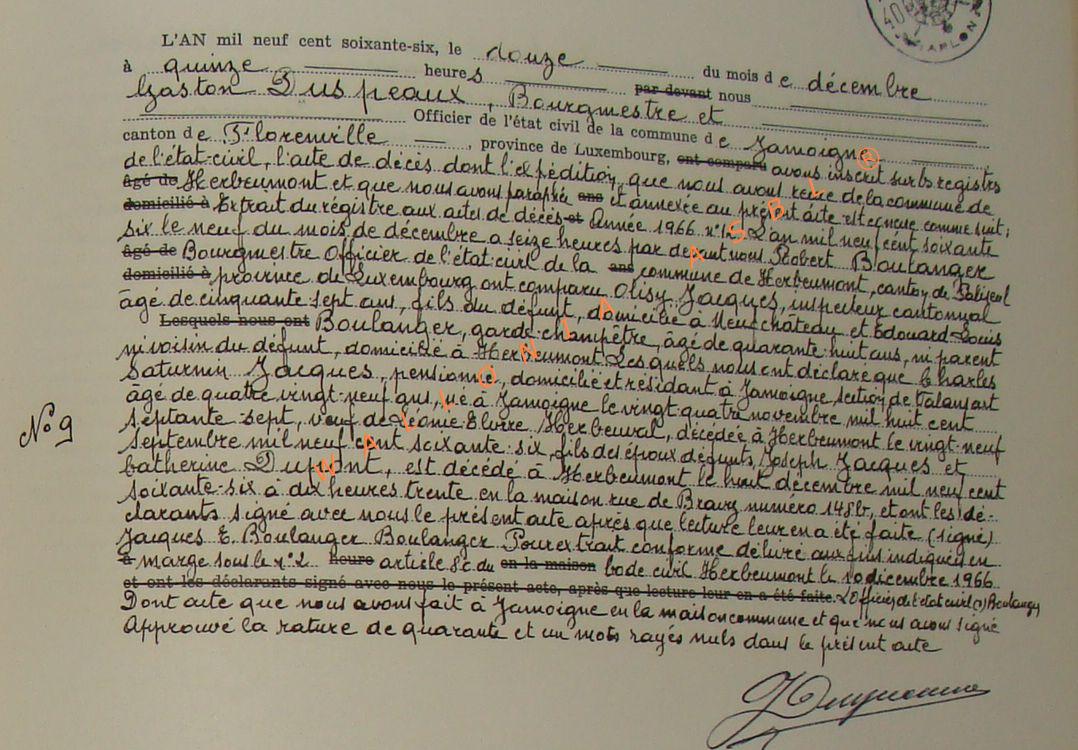 ARLON
L'AN mil neuf cent soixante-six, le douze du mois de décembre
à quinze heures par devant nous
Gaston Duspeaux, Bourgmestre et
Officier de l'état civil de la commune de Jamoigne
canton de Florenville, province de Luxembourg, ont comparu avons inscrit sur les registres
de l'état-civil, l'acte de décès dont l'expédition, que nous avons reçue de la commune de
âgé de Herbeumont et que nous avons paraphée ans et annexée au présent acte est conçue comme suit;
domicilié à Extrait du régistre aux actes de décès et Année 1966 n°15 L'an mil neuf cent soixante
six le neuf du mois de décembre a seize heures par devant nous Robert Boulanger
âgé de Bourgmestre Officier de l'état-civil de la ans commune de Herbeumont, canton de Paliseul
domicilié à province de Luxembourg ont comparu Olisy Jacques, inspecteur cantonnal
âgé de cinquante sept ans, fils du défunt, domicilié à Neufchâteau et Edouard Louis
Lesquels nous ont Boulanger, garde-champêtre, âgé de quarante huit ans, ni parent
ni voisin du défunt, domicilié à Herbeumont Lesquels nous ont déclaré que Charles
Saturnin Jacques, pensionné, domicilié et résidant à Jamoigne section de Valansart
âgé de quatre vingt-neuf ans, né à Jamoigne le vingt quatre novembre mil huit cent
septante-sept, veuf de Léonie Elvire Herbeuval, décédée à Herbeumont le vingt-neuf
septembre mil neuf cent soixante-six, fils des époux défunts, Joseph Jacques et
Catherine Dupont, est décédé à Herbeumont le huit décembre mil neuf cent
N° 9
soixante-six à dix heures trente en la maison rue de Bravy numéro 148b, et ont les dé-
clarants signé avec nous le présent acte après que lecture leur en a été faite (signé)
Jacques E. Boulanger Boulanger Pour extrait conforme délivré aux fins indiquées en
à marge sous le n°2 heure article 80 du en la maison Code civil Herbeumont le 10 décembre 1966
et ont les déclarants signé avec nous le présent acte, après que lecture leur en a été faite. L'Officier de l'état civil (s) Boulanger
Dont acte que nous avons fait à Jamoigne en la maison commune et que nous avons signé
Approuvé la rature de quarante et un mots rayés nuls dans le présent acte
WALLONIA ASBL ®